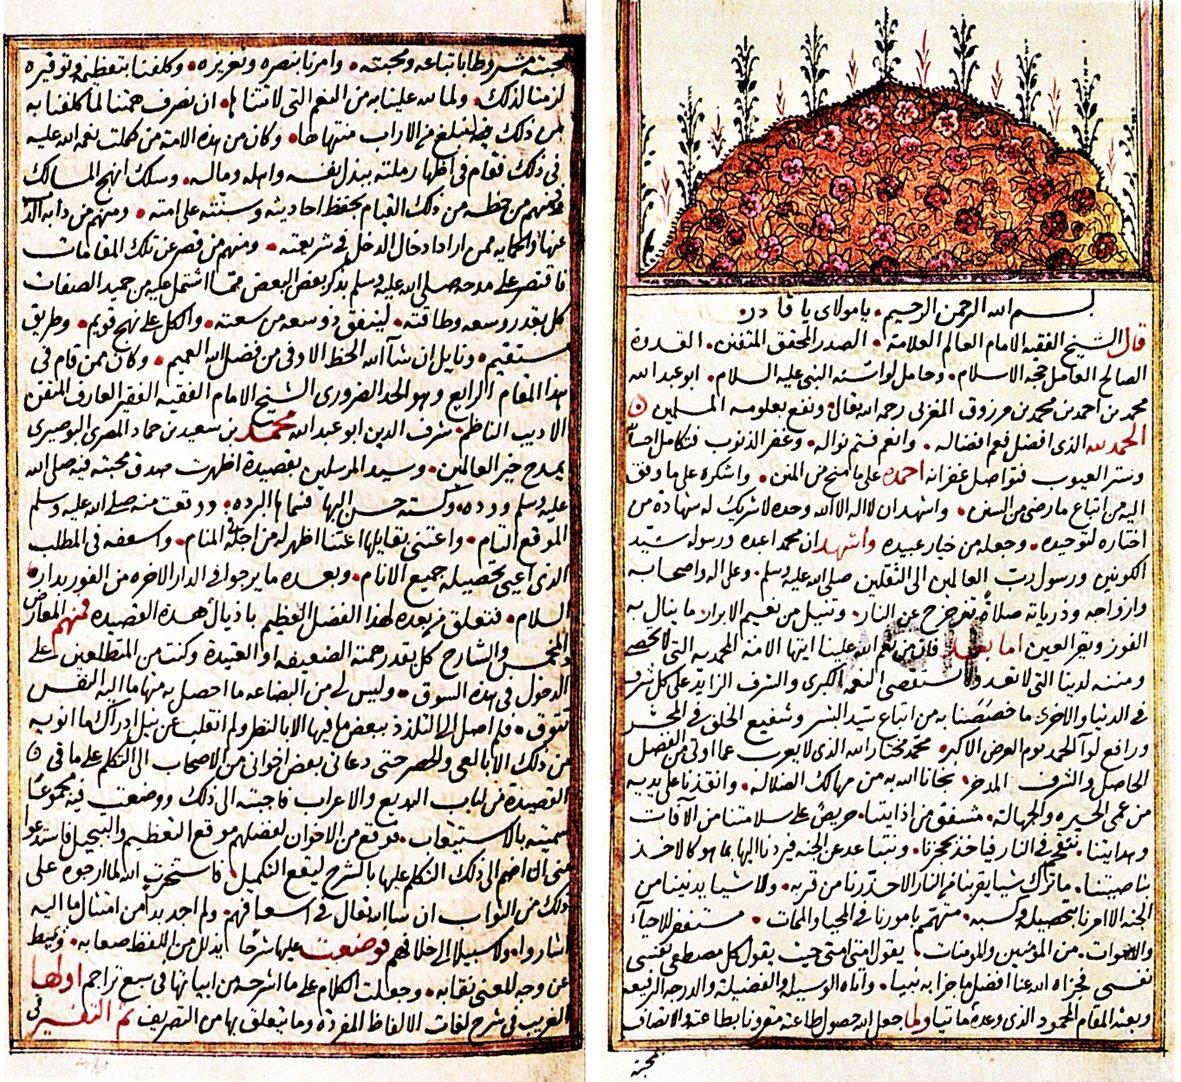 بسم الله الرحمن الرحيم • يا مولاي يا قادر
قال الشيخ الفقيه الامام العالم العلامة • الصدر المحقق المتقن • القدوة
الصالح العامل حجه الاسلام • وحامل لواء سنه النبي عليه السلام • ابو عبد الله
محمد بن احمد بن محمد بن مرزوق المغربي رحمه الله تعالى ونفع بعلومه المسلمين
الحمد لله الذي افضل فعم افضاله • وانعم فتم نواله • وغفر الذنوب فتكامل احسانه
وستر العيوب فتواصل غفرانه احمده على ما منح من المنن • واشكره على ما وفق
اليه من اتباع ما رضى من السنن • واشهد ان لا اله الا الله وحده لا شريك له شهادة من
اختاره لتوحيده • وجعله من خيار عبيده واشهد ان محمدا عبده ورسوله سيد
الكونين ورسول رب العالمين الى الثقلين صلى الله عليه وسلم • وعلى اله واصحابه
وازواجه وذرياته صلاة تزحزح عن النار • وتنيل من نعيم الابرار ما ينال به
الفوز وتقر العين اما بعد فان من نعم الله علينا ايتها الامة المحمديه التي لا تحصى
ومننه لدينا التي لا تعد ولا تستقصى النعمه الكبرى والشرف الزايد على كل شرف
في الدنيا والاخرى ما خصصنا به من اتباع سيد البشر وشفيع الخلق في المحشر
ورافع لواء الحمد يوم العرض الاكبر • محمد مختار الله الذي لا يعرب عما اوتى من الفضل
الحاصل والشرف المدخر نجانا الله به من مهالك الضلاله • وانقذنا على يديه
من عمى الحيره والجهالة • مشفق من اذايتنا • حريص على سلامتنا من الآفات
وهدايتنا • نتقحم في النار فياخذ بحجزنا • ونتباعد عن الجنه فيردنا اليها بما هو كالاخذ
بناصيتنا • ما ترك شيا يقربنا من النار الا حذرنا من قربه • ولا شيا يدنينا من
الجنة الا امرنا بتحصيله وكسبه • مهتم بامورنا في المحيا والممات • مستغفر للاحياء
والاموات • من المؤمنين والمومنات • يقول امتي امتي حيث يقول كل مصطفى نفسي
نفسي فجزاه الله عنا افضل ما جزا به نبيا • واتاه الوسيله والفضيلة والدرجه الرفيعه
وبعثه المقام المحمود الذي وعده ولما جعل الله حصول طاعته مقرونا بطاعته
محبته
محبته مشروطا باتباعه ومحبته • وامرنا بنصره وتعزيزه • وكلفنا بتعظيمه وتوقيره
لزمنا لذلك • ولما لله علينا به من النعم التي لا تتناها • ان نصرف هممنا لما كلفنا به
من ذلك نبلغ من الاراب منتهاها • وكان من هذه الامة من كملت نعمة الله عليه
في ذلك فقام في اظهار ملته ببذل نفسه واهله وماله • وسلك انهج المسالك
فمنهم من حظه من ذلك القيام بحفظ احاديثه وسنته على امته • ومنهم من دابه
عنها والحمايه ممن اراد ادخال الدخل في شريعته • ومنهم من قصر عن تلك المقامات
فاقتصر على مدحه صلى الله عليه وسلم بذكر بعض البعض مما اشتمل عليه من حميد الصفات
كل بقدر وسعه وطاقته • لينفق ذو سعة من سعته • والكل على نهج قويم • وطريق
مستقيم • ونايل ان شا الله الحظ الاوفى من فضل الله العميم • وكان ممن قام في
هذا المقام الرابع وهو الحد الضروري الشيخ الامام الفقيه الفقير العارف المتقن
الاديب الناظم • شرف الدين ابو عبد الله محمد بن سعيد بن حماد المصري البوصيري
يمدح خير العالمين • وسيد المرسلين بقصيدة اظهرت صدق محبته فيه صلى الله
عليه وسلم ووده • وكسته حسن البها فسماها البرده • ووقعت منه صلى الله عليه وسلم
الموقع التام • واعتنى بقايلها اعتنا اظهر له من اجله في المنام • واسعفه في المطلب
الذي اعيى تحصيله جميع الانام • وبعده ما يرجوا في الدار الاخره من الفوز بدار
السلام • فتعلق من بعده لهذا الفضل العظيم باذيال هذه القصيده فمنهم المعارض
والمخمس والشارح كل بقدر همته الضعيفه او العتيدة وكنت من المتطلعين على
الدخول في هذه السوق • وليس لي من البضاعه ما احصل به منها ما اليه النفس
تتوق • فلم اصل الى التلذذ ببعض ما فيها الا بالنظر ولم انقلب عن نيل ادراك ما انويه
من ذلك الا بالعي والحصر حتى دعاني بعض اخواني من الاصحاب الى التكلم على ما في
القصيدة من لباب البديع والاعراب فاجبته الى ذلك ووضعت فيه مجموعا
سميته بالاستيعاب • فوقع من الاخوان لفضلهم موقع التعظيم والتبجيل فاستدعوا
منى ان اضم الى ذلك التكلم عليها بالشرح ليقع التكميل • فاستخرت الله لما ارجوه على
ذلك من الثواب ان شا الله تعالى في اسعافهم • ولم اجد بدا من امتثال ما اليه
اشاروا • ولا سبيلا الى خلافهم فوضعت عليها شرحا يذلل من اللفظ صعابه • ويميط
عن وجه المعنى نقابه • وجعلت الكلام على ما اشرحه من ابياتها في سبع تراجم اولها
الغريب في شرح لغات الالفاظ المفردة وما يتعلق بها من التصريف ثم التفسير في